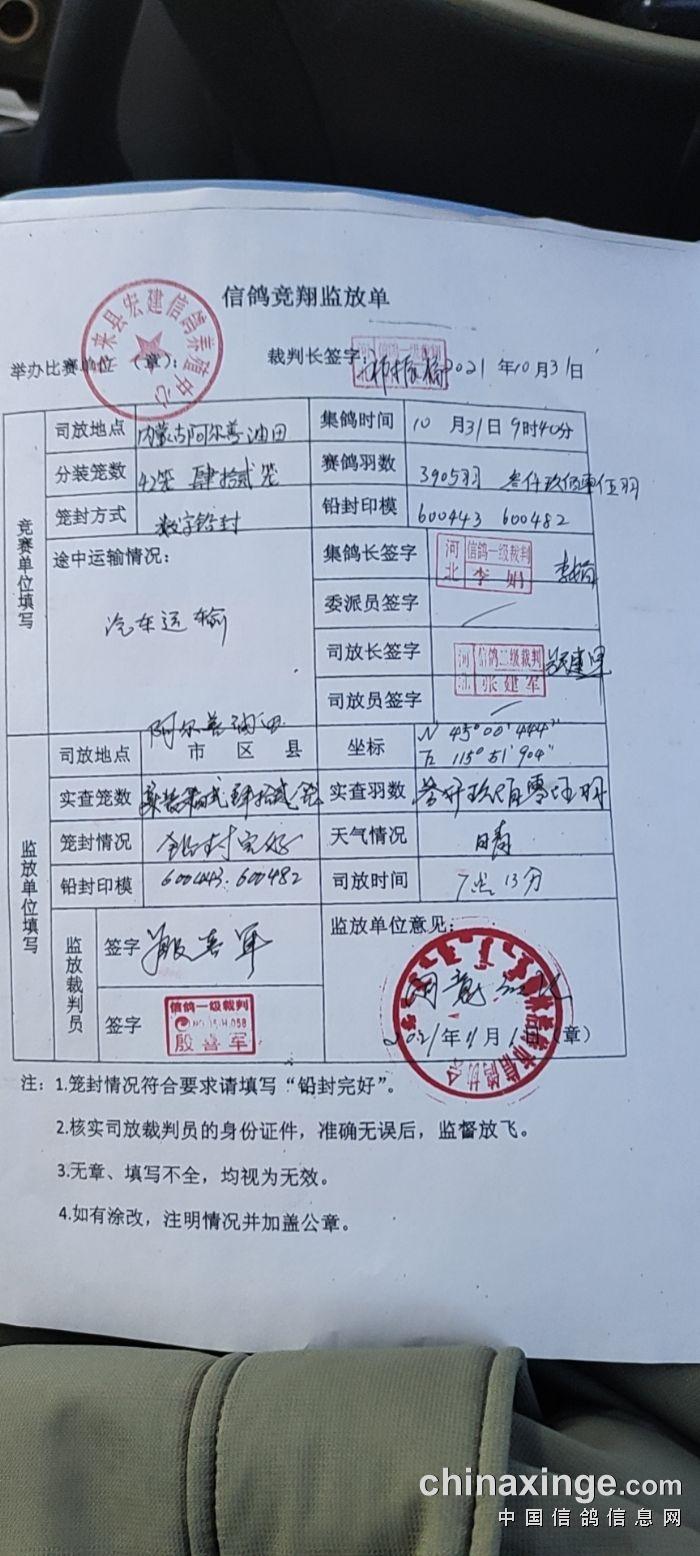 信鸽竞翔监放单
来县宏建信鸽养殖中心
举办比赛单位（章）： 裁判长签字： 2021年10月31日
信鸽一级裁判
竞赛单位填写
司放地点 内蒙古阿尔善油田 集鸽时间 10月31日9时40分
分装笼数 42笼 肆拾贰笼 赛鸽羽数 3905羽 叁仟玖佰零伍羽
笼封方式 数字铅封 铅封印模 600443 600482
途中运输情况： 集鸽长签字 河北 信鸽一级裁判 李娟 李娟
汽车运输 委派员签字
司放长签字 河北 信鸽二级裁判 张建军 张建军
司放员签字
监放单位填写
司放地点 阿尔善油田 市 区 县 坐标 N 45°00′444″
115°51′904″
实查笼数 肆拾贰笼 实查羽数 叁仟玖佰零伍羽
笼封情况 铅封完好 天气情况 晴
铅封印模 600443. 600482 司放时间 7点13分
监放裁判员 签字 殷喜军 监放单位意见：
签字 信鸽一级裁判 殷喜军
信鸽协会
2021年11月1日（章）
注：1.笼封情况符合要求请填写“铅封完好”。
2.核实司放裁判员的身份证件，准确无误后，监督放飞。
3.无章、填写不全，均视为无效。
4.如有涂改，注明情况并加盖公章。
chinaxinge.com
中国信鸽信息网